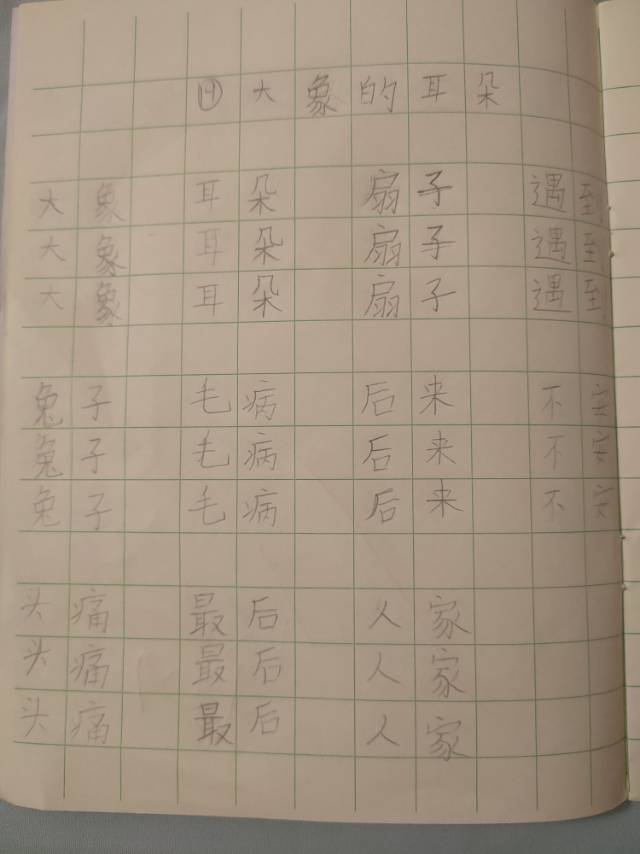 ⑲大象的耳朵
大象 耳朵 扇子 遇到
大象 耳朵 扇子 遇到
大象 耳朵 扇子 遇到
兔子 毛病 后来 不安
兔子 毛病 后来 不安
兔子 毛病 后来 不安
头痛 最后 人家
头痛 最后 人家
头痛 最后 人家